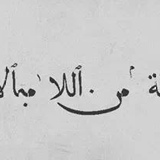 ة من اللا مبالا